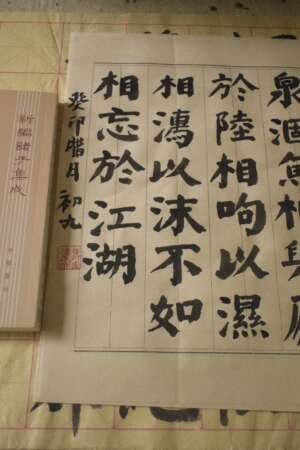 泉涸魚相與處
於陸相呴以濕
相濡以沫不如
相忘於江湖
癸卯臘月初九
新編諸子集成